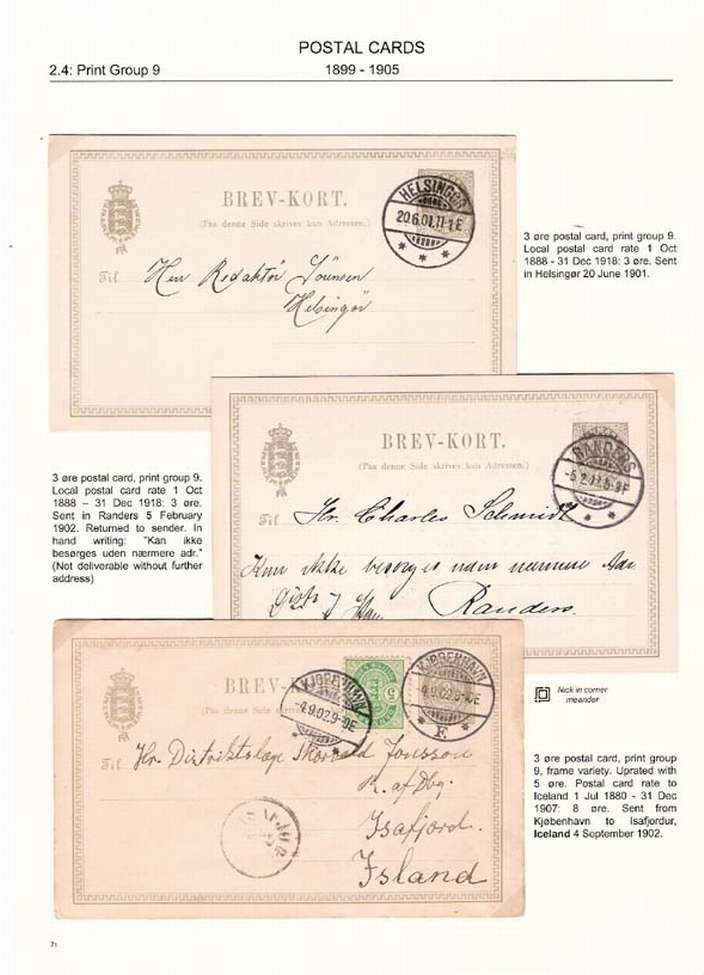 POSTAL CARDS
2.4: Print Group 9
1899 - 1905
BREV-KORT.
(Paa denne Side skrives kun Adressen.)
HELSINGØR
20.6.01.11-1E
Til Herr Redaktør Sörensen
Helsingør
3 øre postal card, print group 9.
Local postal card rate 1 Oct
1888 - 31 Dec 1918: 3 øre. Sent
in Helsingør 20 June 1901.
BREV-KORT.
(Paa denne Side skrives kun Adressen.)
RANDERS
Til Hr. Charles Schmidt
Kan ikke besorges uden nærmere Adr.
Randers.
3 øre postal card, print group 9.
Local postal card rate 1 Oct
1888 – 31 Dec 1918: 3 øre.
Sent in Randers 5 February
1902. Returned to sender. In
hand writing: "Kan ikke
besørges uden nærmere adr."
(Not deliverable without further
address)
KJØBENHAVN
4.9.02.9-10E
KJØBENHAVN
4.9.02.9-10E
F.
5
Til Hr. Distriktslæge Thorvald Jonsson
R. af Dbg.
Isafjord.
Island
Nick in corner
meander
3 øre postal card, print group
9, frame variety. Uprated with
5 øre. Postal card rate to
Iceland 1 Jul 1880 - 31 Dec
1907: 8 øre. Sent from
Kjøbenhavn to Isafjordur,
Iceland 4 September 1902.
71